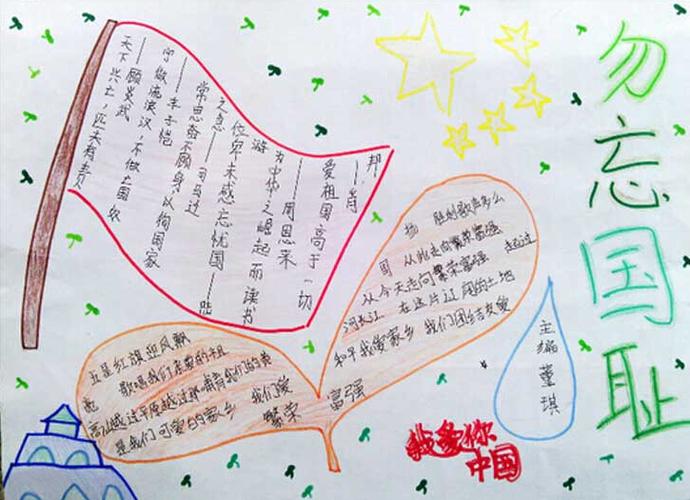 勿忘国耻
天下兴亡，匹夫有责
——顾炎武
宁做流浪汉，不做亡国奴
——丰子恺
常思奋不顾身以徇国家
之急——司马迁
位卑未感忘忧国——陆
游
为中华之崛起而读书
——周恩来
爱祖国高于一切
——肖
邦
五星红旗迎风飘
歌唱我们亲爱的祖
高山越过平原越过
是我们可爱的家乡 我们爱
繁荣 富强
扬 胜利歌声多么
国 从此走向繁荣富强
从今天走向繁荣富强 越过
河长江 在这片辽阔的土地
和平我爱家乡 我们团结友爱
主编董琪
我爱你
中国